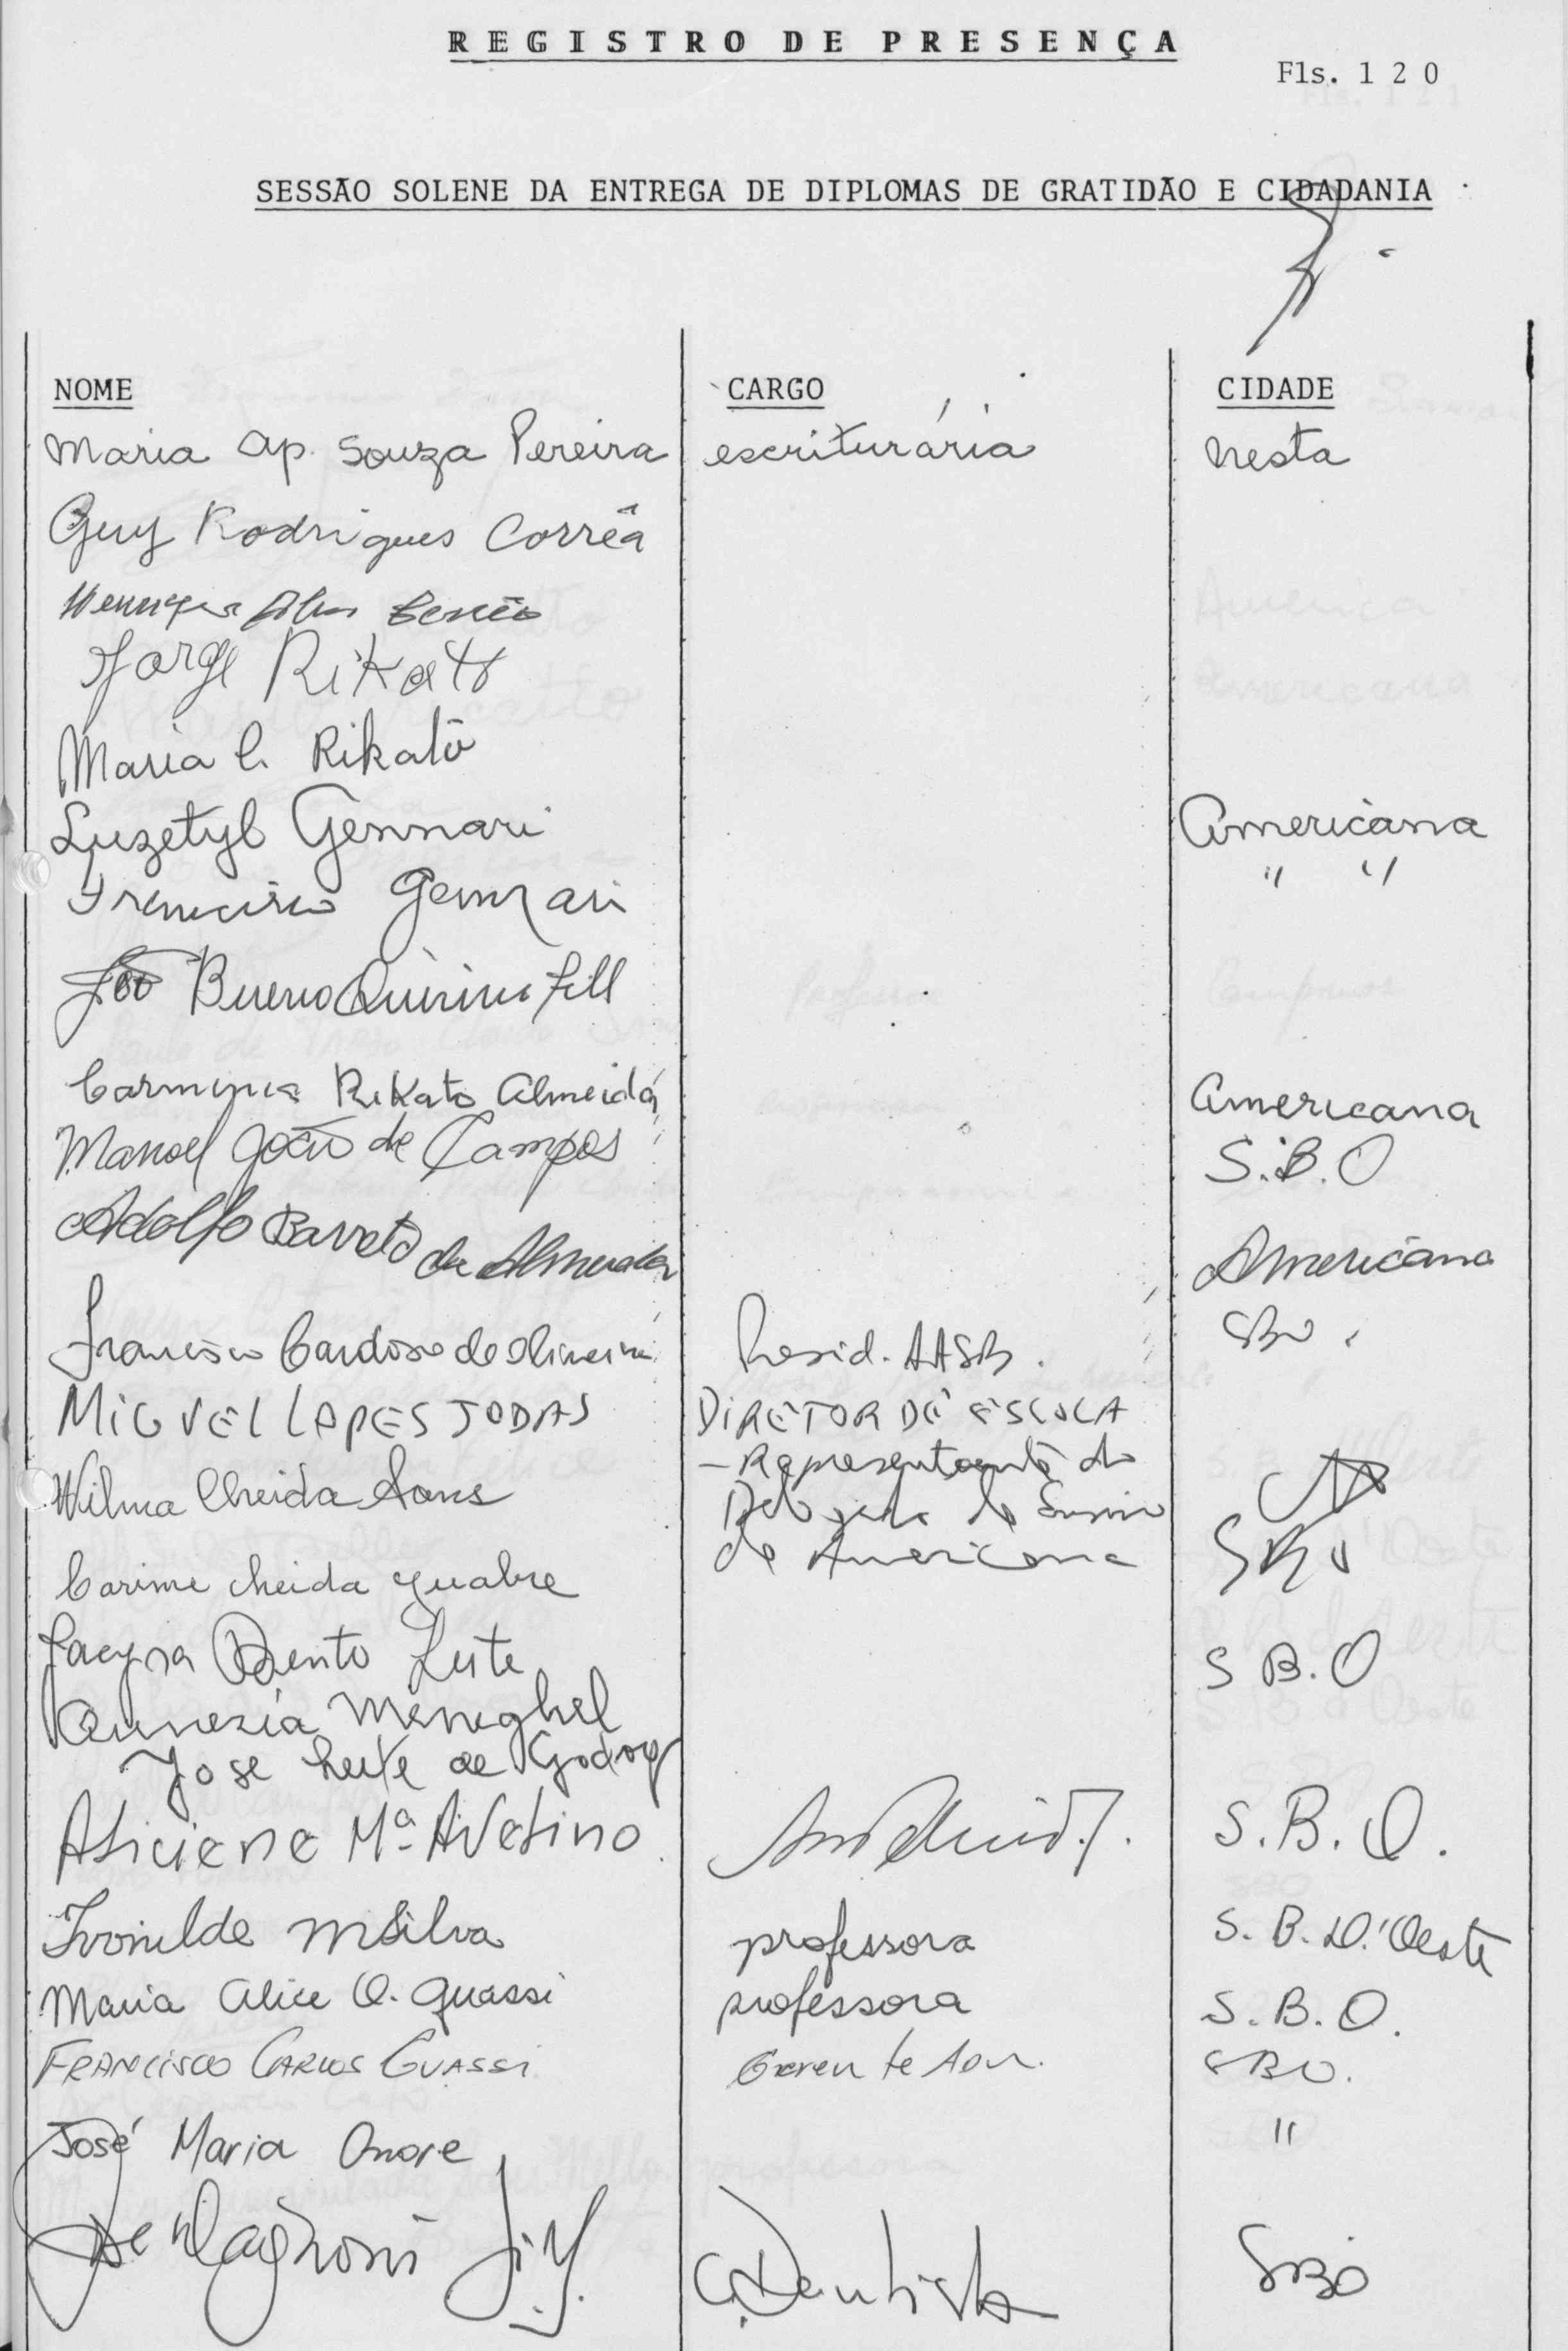 REGISTRO DE PRESENÇA
Fls. 1 2 0
SESSÃO SOLENE DA ENTREGA DE DIPLOMAS DE GRATIDÃO E CIDADANIA
NOME CARGO CIDADE
Maria Ap. Souza Pereira escriturária Nesta
Guy Rodrigues Corrêa
Jorge Rikato
Maria C. Rikato
Luzetyl Gennari Americana
Francisco Gennari " "
Bueno Quirino
Rikato Almeida Americana
Manoel João de Campos S.B.O
Adolfo Barreto de Almeida Americana
Francisco Cardoso de Oliveira Presid. AASB. SBO.
MIGUEL LOPES JODAS DIRETOR DE ESCOLA
- Representante do
Wilma Cheida Sans
de Americana SBO
Carime Cheida
Jacyra Bento Leite S B.O
Meneghel
José Leite de Godoy
Aliciene Mª Avelino S.B.O.
Ivonilde M Silva professora S.B.D'Oeste
Maria Alice O. Guassi professora S.B.O.
FRANCISCO CARLOS GUASSI Gerente Adm. SBO.
José Maria "
C. Dentista SBO